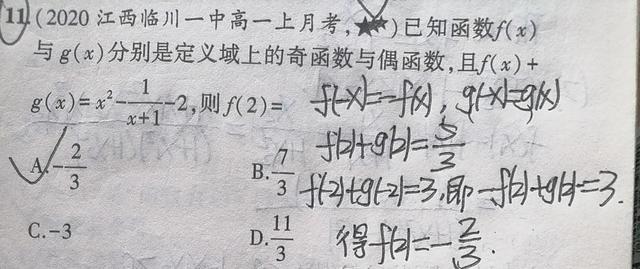 11.(2020 江西临川一中高一上月考,★★)已知函数f(x)
与g(x)分别是定义域上的奇函数与偶函数,且f(x)+
g(x)=x²-1/(x+1)-2,则f(2)= f(-x)=-f(x), g(-x)=g(x)
f(2)+g(2)=5/3
A.-2/3 B.7/3 f(-2)+g(-2)=3,即-f(2)+g(2)=3.
C.-3 D.11/3 得f(2)=-2/3.